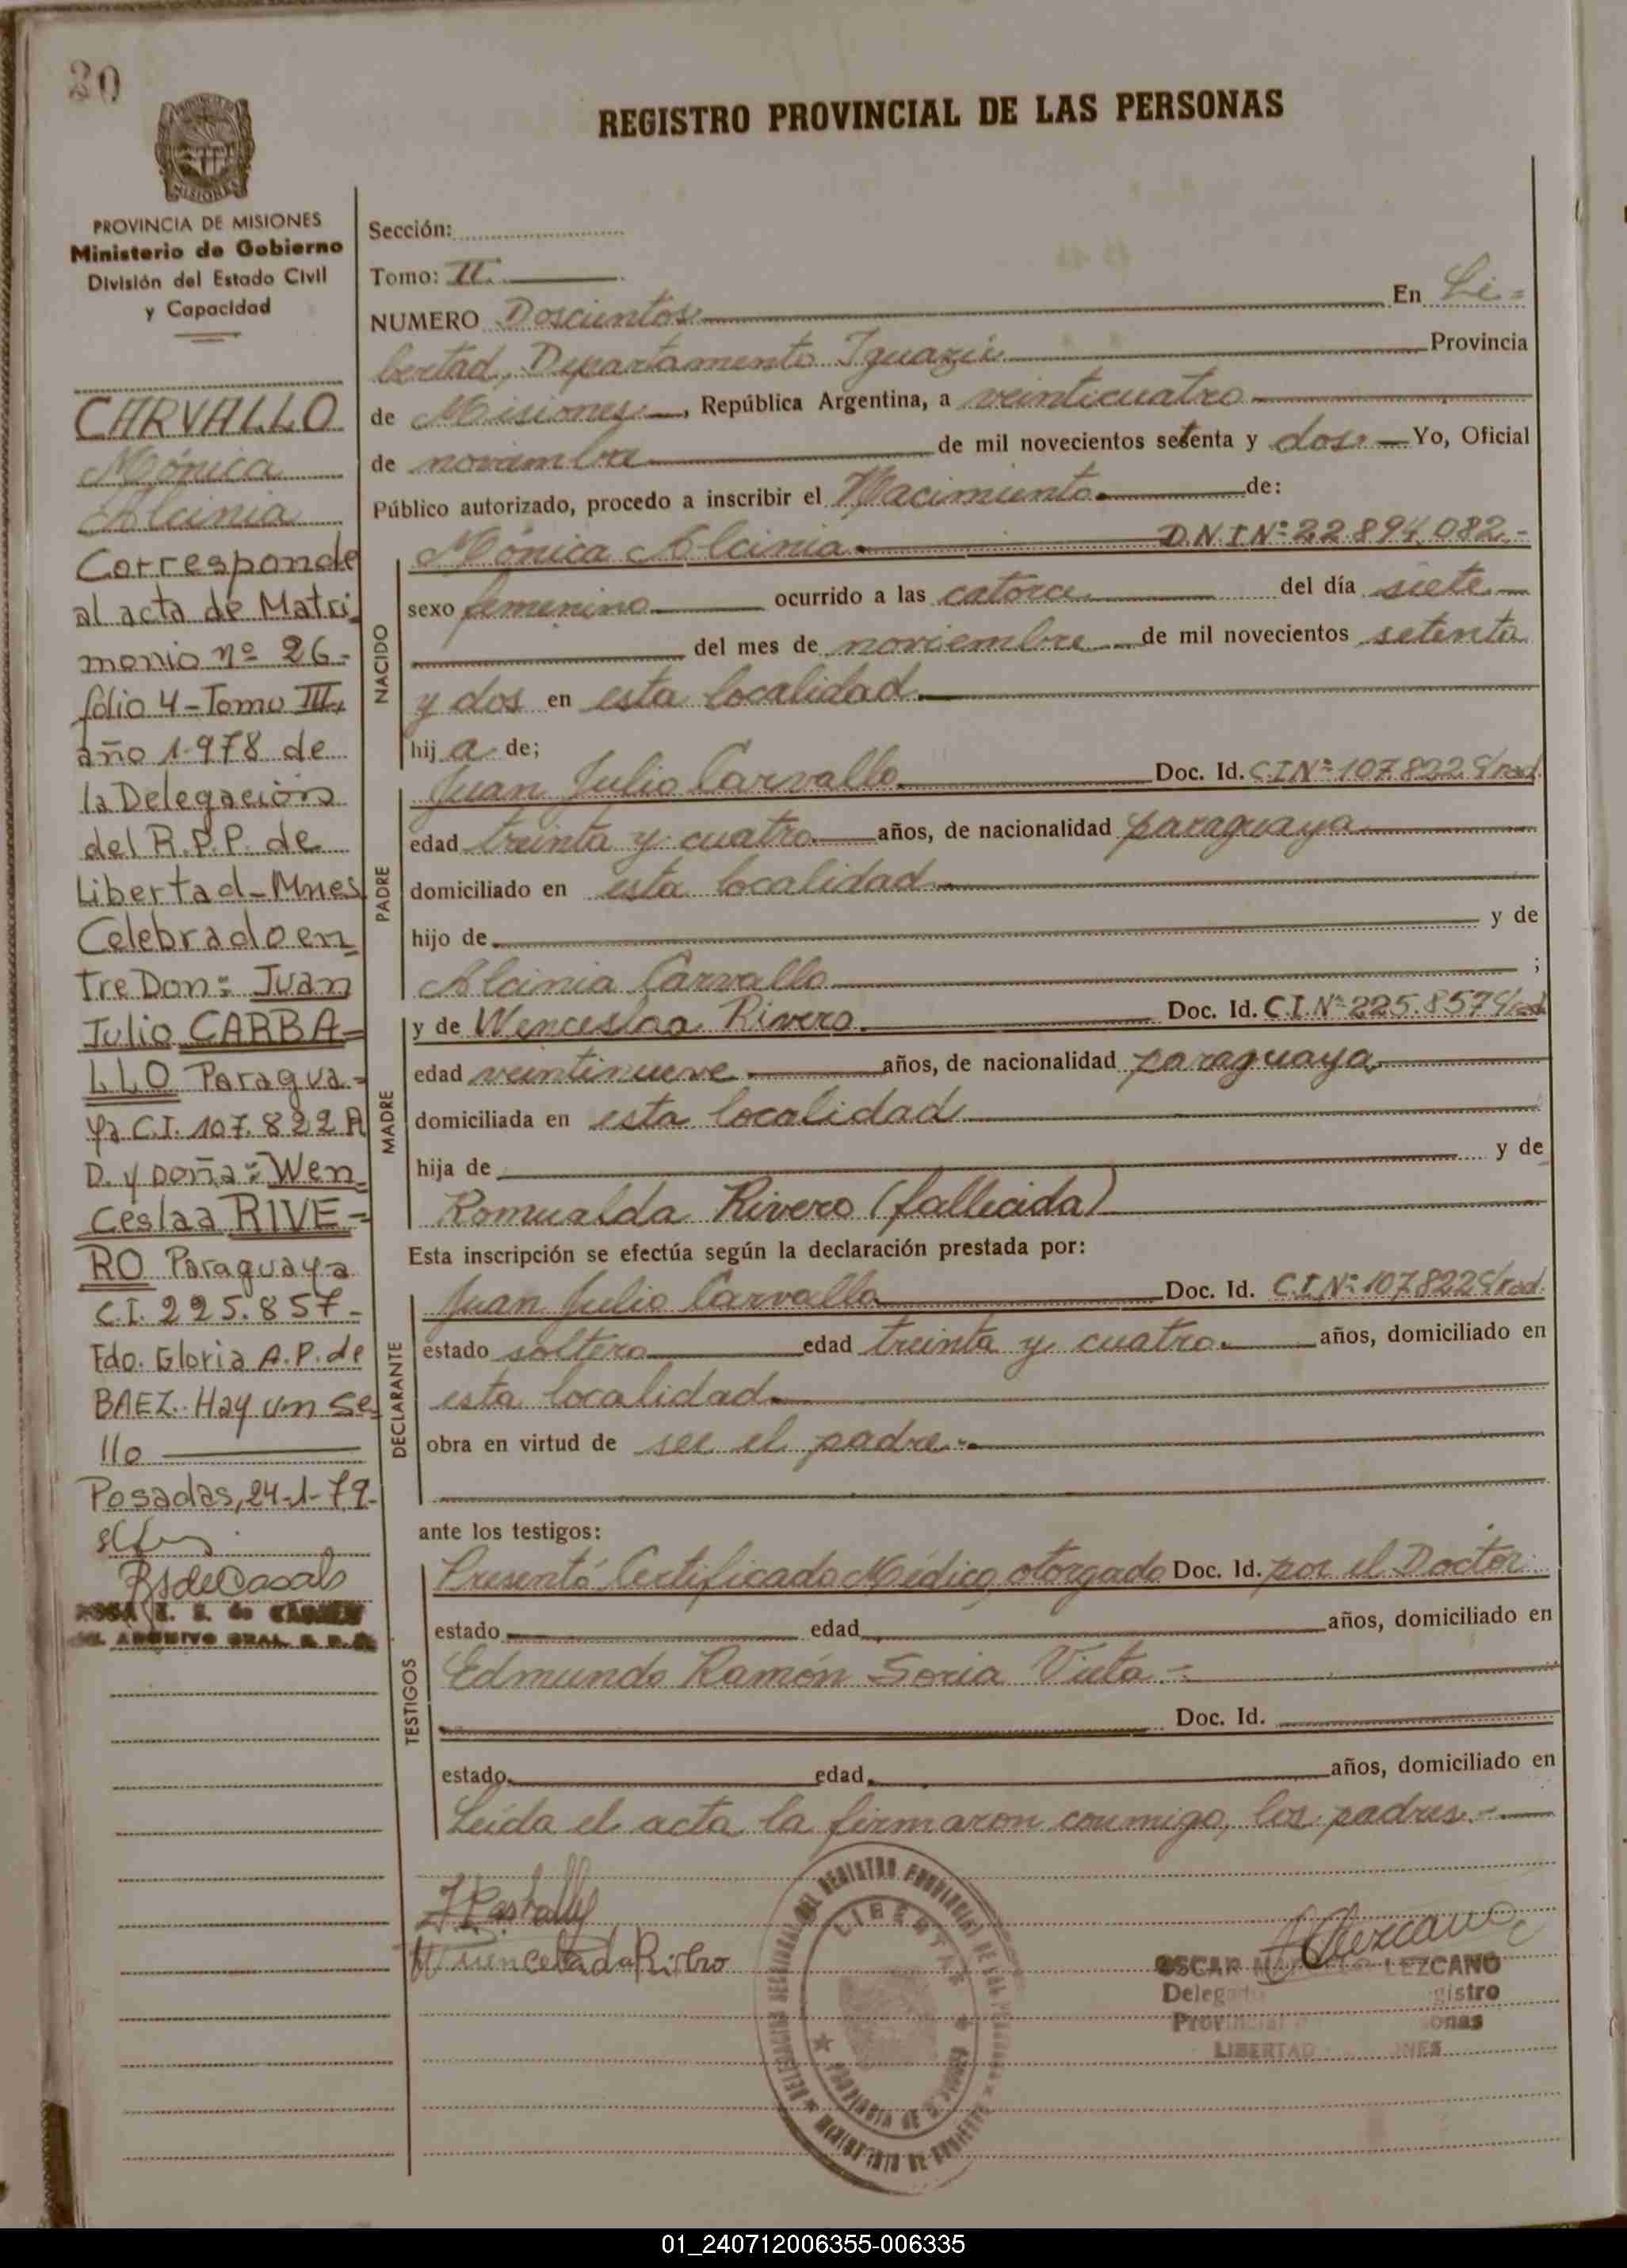 20
REGISTRO PROVINCIAL DE LAS PERSONAS
MISIONES
PROVINCIA DE MISIONES
Ministerio de Gobierno
División del Estado Civil
y Capacidad
CARVALLO
Mónica
Alcinia
Corresponde
al acta de Matri
monio nº 26-
folio 4-Tomo III,
año 1.978 de
la Delegación
del R.P.P. de
Libertad-Mnes
Celebrado en
tre Don: Juan
Julio CARBA-
LLO Paragua-
ya C.I. 107.822 A
D. y doña: Wen
ceslaa RIVE-
RO Paraguaya
C.I. 225.857-
Fdo. Gloria A.P. de
BAEZ. Hay un se
llo
Posadas, 24-1-79-
Sección:
Tomo: II
NUMERO Doscientos En Li-
bertad, Departamento Iguazú Provincia
de Misiones, República Argentina, a veinticuatro
de noviembre de mil novecientos setenta y dos.- Yo, Oficial
Público autorizado, procedo a inscribir el Nacimiento de:
NACIDO
Mónica Alcinia D.N.I Nº 22.894.082.-
sexo femenino ocurrido a las catorce del día siete
del mes de noviembre de mil novecientos setenta
y dos en esta localidad
hija de;
PADRE
Juan Julio Carvallo Doc. Id. C I Nº 107.822
edad treinta y cuatro años, de nacionalidad paraguaya
domiciliado en esta localidad
hijo de y de
Alcinia Carvallo ;
MADRE
y de Wenceslaa Rivero Doc. Id. C.I. Nº 225.857
edad veintinueve años, de nacionalidad paraguaya
domiciliada en esta localidad
hija de y de
Romualda Rivero (fallecida)
Esta inscripción se efectúa según la declaración prestada por:
DECLARANTE
Juan Julio Carvallo Doc. Id. C.I. Nº 107.822
estado soltero edad treinta y cuatro años, domiciliado en
esta localidad
obra en virtud de ser el padre.-
ante los testigos:
TESTIGOS
Presentó Certificado Médico, otorgado Doc. Id. por el Doctor
estado edad años, domiciliado en
Edmundo Ramón Soria Vieta.-
Doc. Id.
estado edad años, domiciliado en
Leída el acta la firmaron conmigo, los padres.-
LIBERTAD
OSCAR LEZCANO
01_240712006355-006335